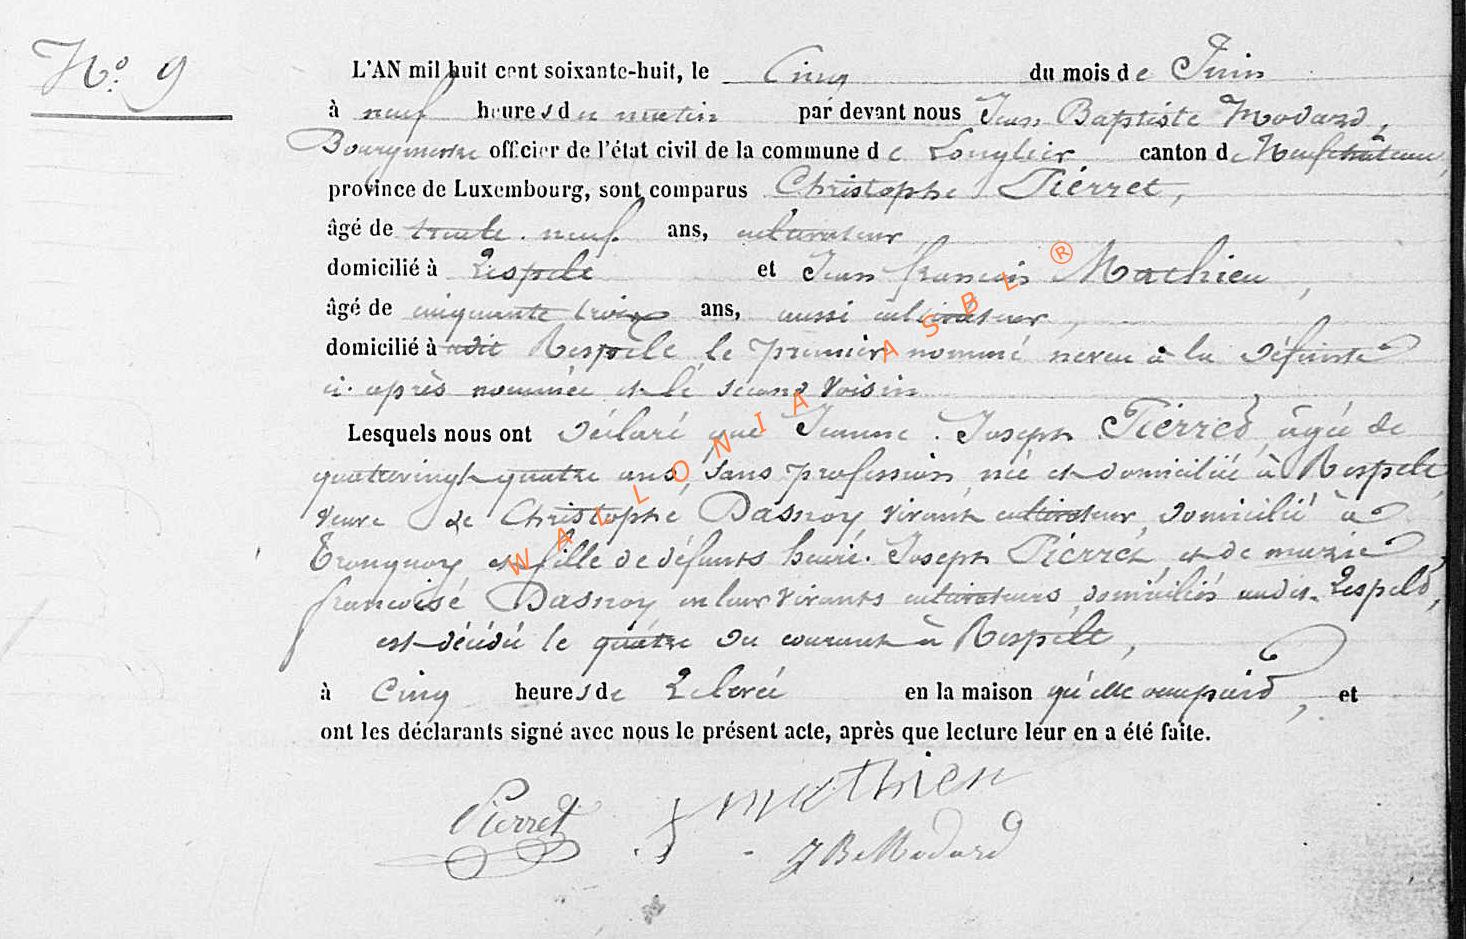 N.º 9
L'AN mil huit cent soixante-huit, le Cinq du mois de Juin
à neuf heures du matin par devant nous Jean Baptiste Modard,
Bourgmestre officier de l'état civil de la commune de Longlier canton de Neufchâteau,
province de Luxembourg, sont comparus Christophe Pierret,
âgé de trente-neuf ans, cultivateur
domicilié à Respelt et Jean françois Mathieu,
âgé de cinquante trois ans, aussi cultivateur,
domicilié à udit Respelt, le premier nommé neveu à la défunte
ci-après nommée et le second voisin
Lesquels nous ont déclaré que Jeanne Joseph Pierret, âgée de
quatrevingt quatre ans, sans profession, née et domiciliée à Respelt,
veuve de Christophe Dasnoy, vivant cultivateur, domicilié à
Tronquoy et fille de défunts henri Joseph Pierret et de marie
françoise Dasnoy en leur vivants cultivateurs, domiciliés audit Respelt,
est décédée le quatre du courant à Respelt,
à Cinq heures de Relevée en la maison qu'elle occupait, et
ont les déclarants signé avec nous le présent acte, après que lecture leur en a été faite.
Pierret
Mathieu
J B Modard
WALLONIA ASBL ®